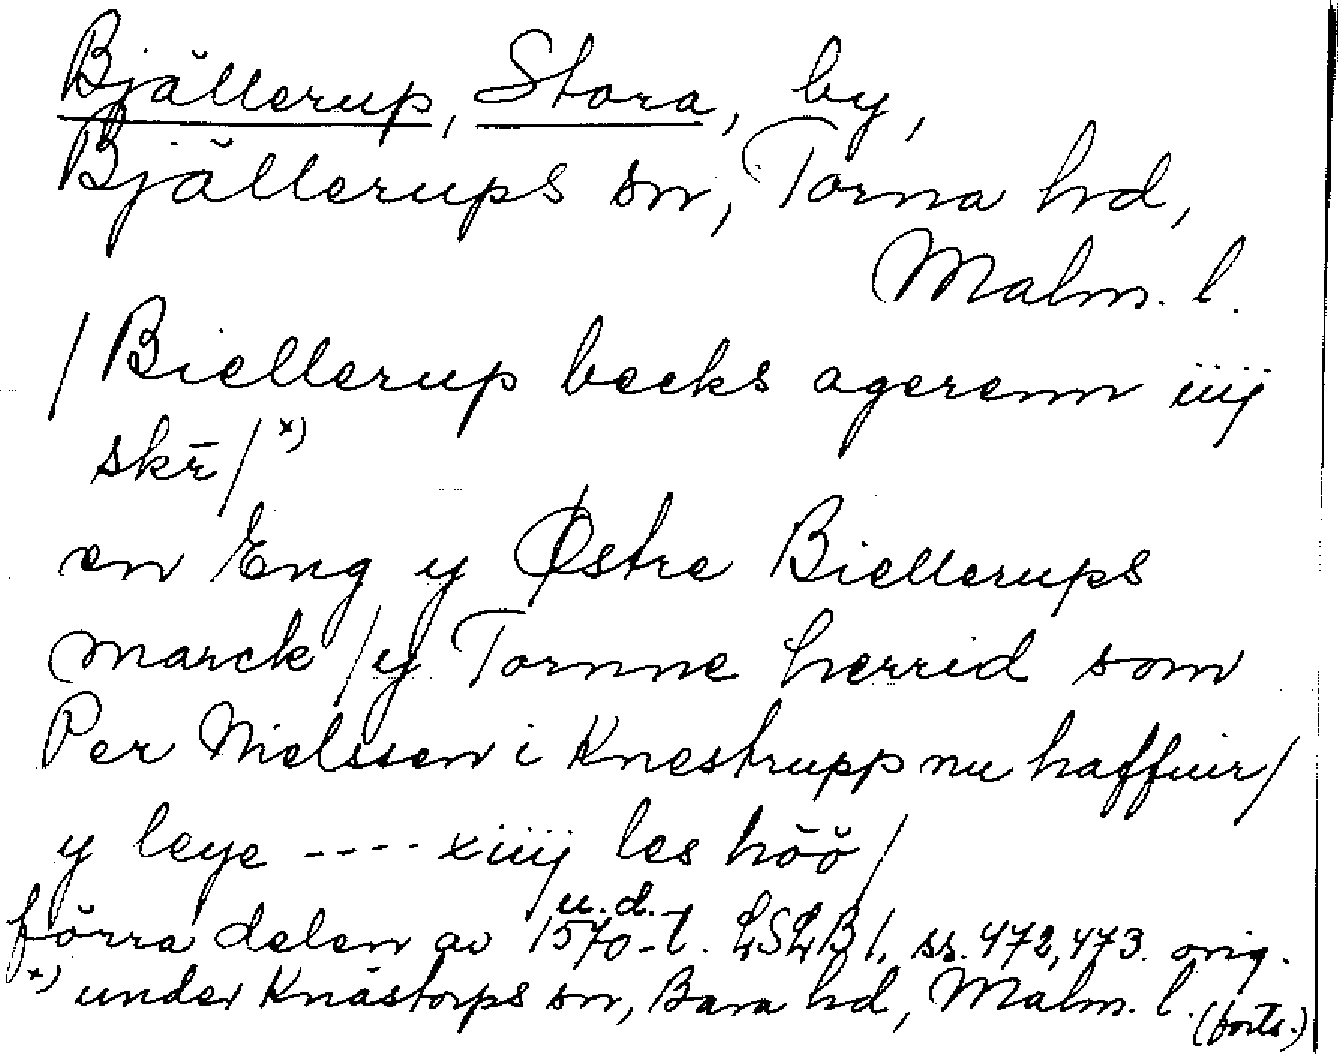 Bjällerup, Stora, by,
Bjällerups sn, Torna hd,
Malm. l.
/Biellerup becks agerenn iiij
skr̄/ *)
en Eng y Østre Biellerups
marck /y Tornne herrid som
Per Nielssen i Knestrupp nu haffuir/
y leye ---- xiiij les höö/
u.d.
förra delen av 1570-t. LSLB 1, ss. 472, 473. orig.
*) under Knästorps sn, Bara hd, Malm. l.
(forts.)